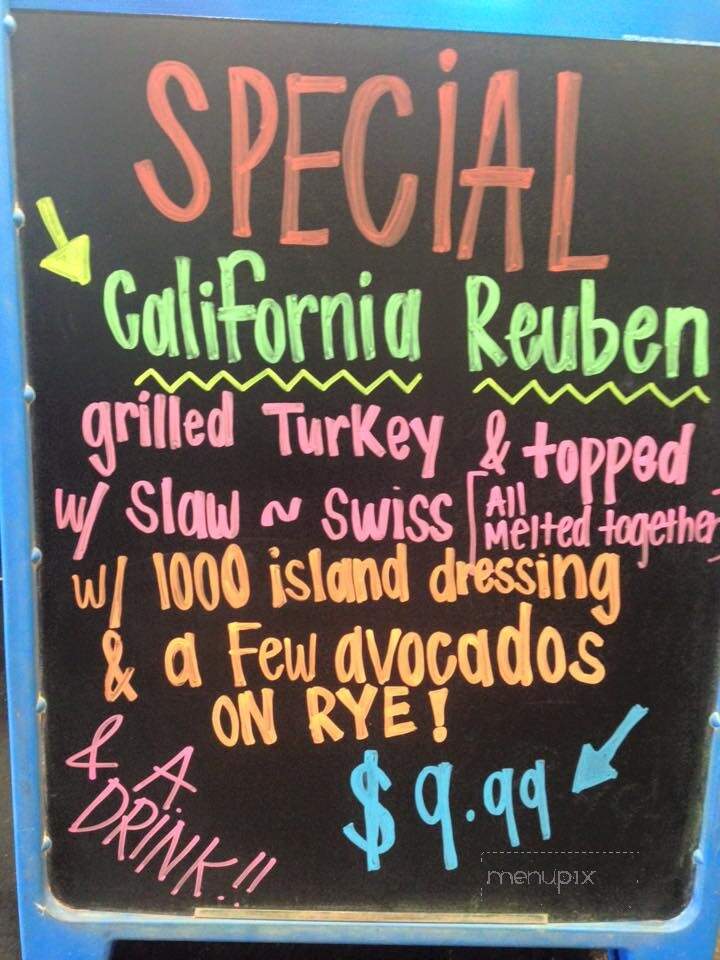 SPECiAL
California Reuben
grilled Turkey & topped
w/ Slaw ~ Swiss [All Melted together]
w/ 1000 island dressing
& a Few avocados
ON RYE!
& A DRINK!!
$9.99
menupix